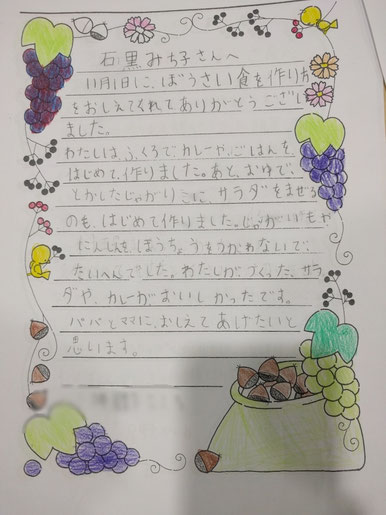 石黒みち子さんへ
11月1日に、ぼうさい食を作り方
をおしえてくれてありがとうござい
ました。
わたしは、ふくろで、カレーや、ごはんを
はじめて、作りました。あと、おゆで、
とかしたじゃがりこに、サラダをまぜる
のも、はじめて作りました。じゃがいもや
にんじんを、ほうちょうをつかわないで、
たいへんでした。わたしがつくった、サラ
ダや、カレーがおいしかったです。
パパとママに、おしえてあげたいと
思います。